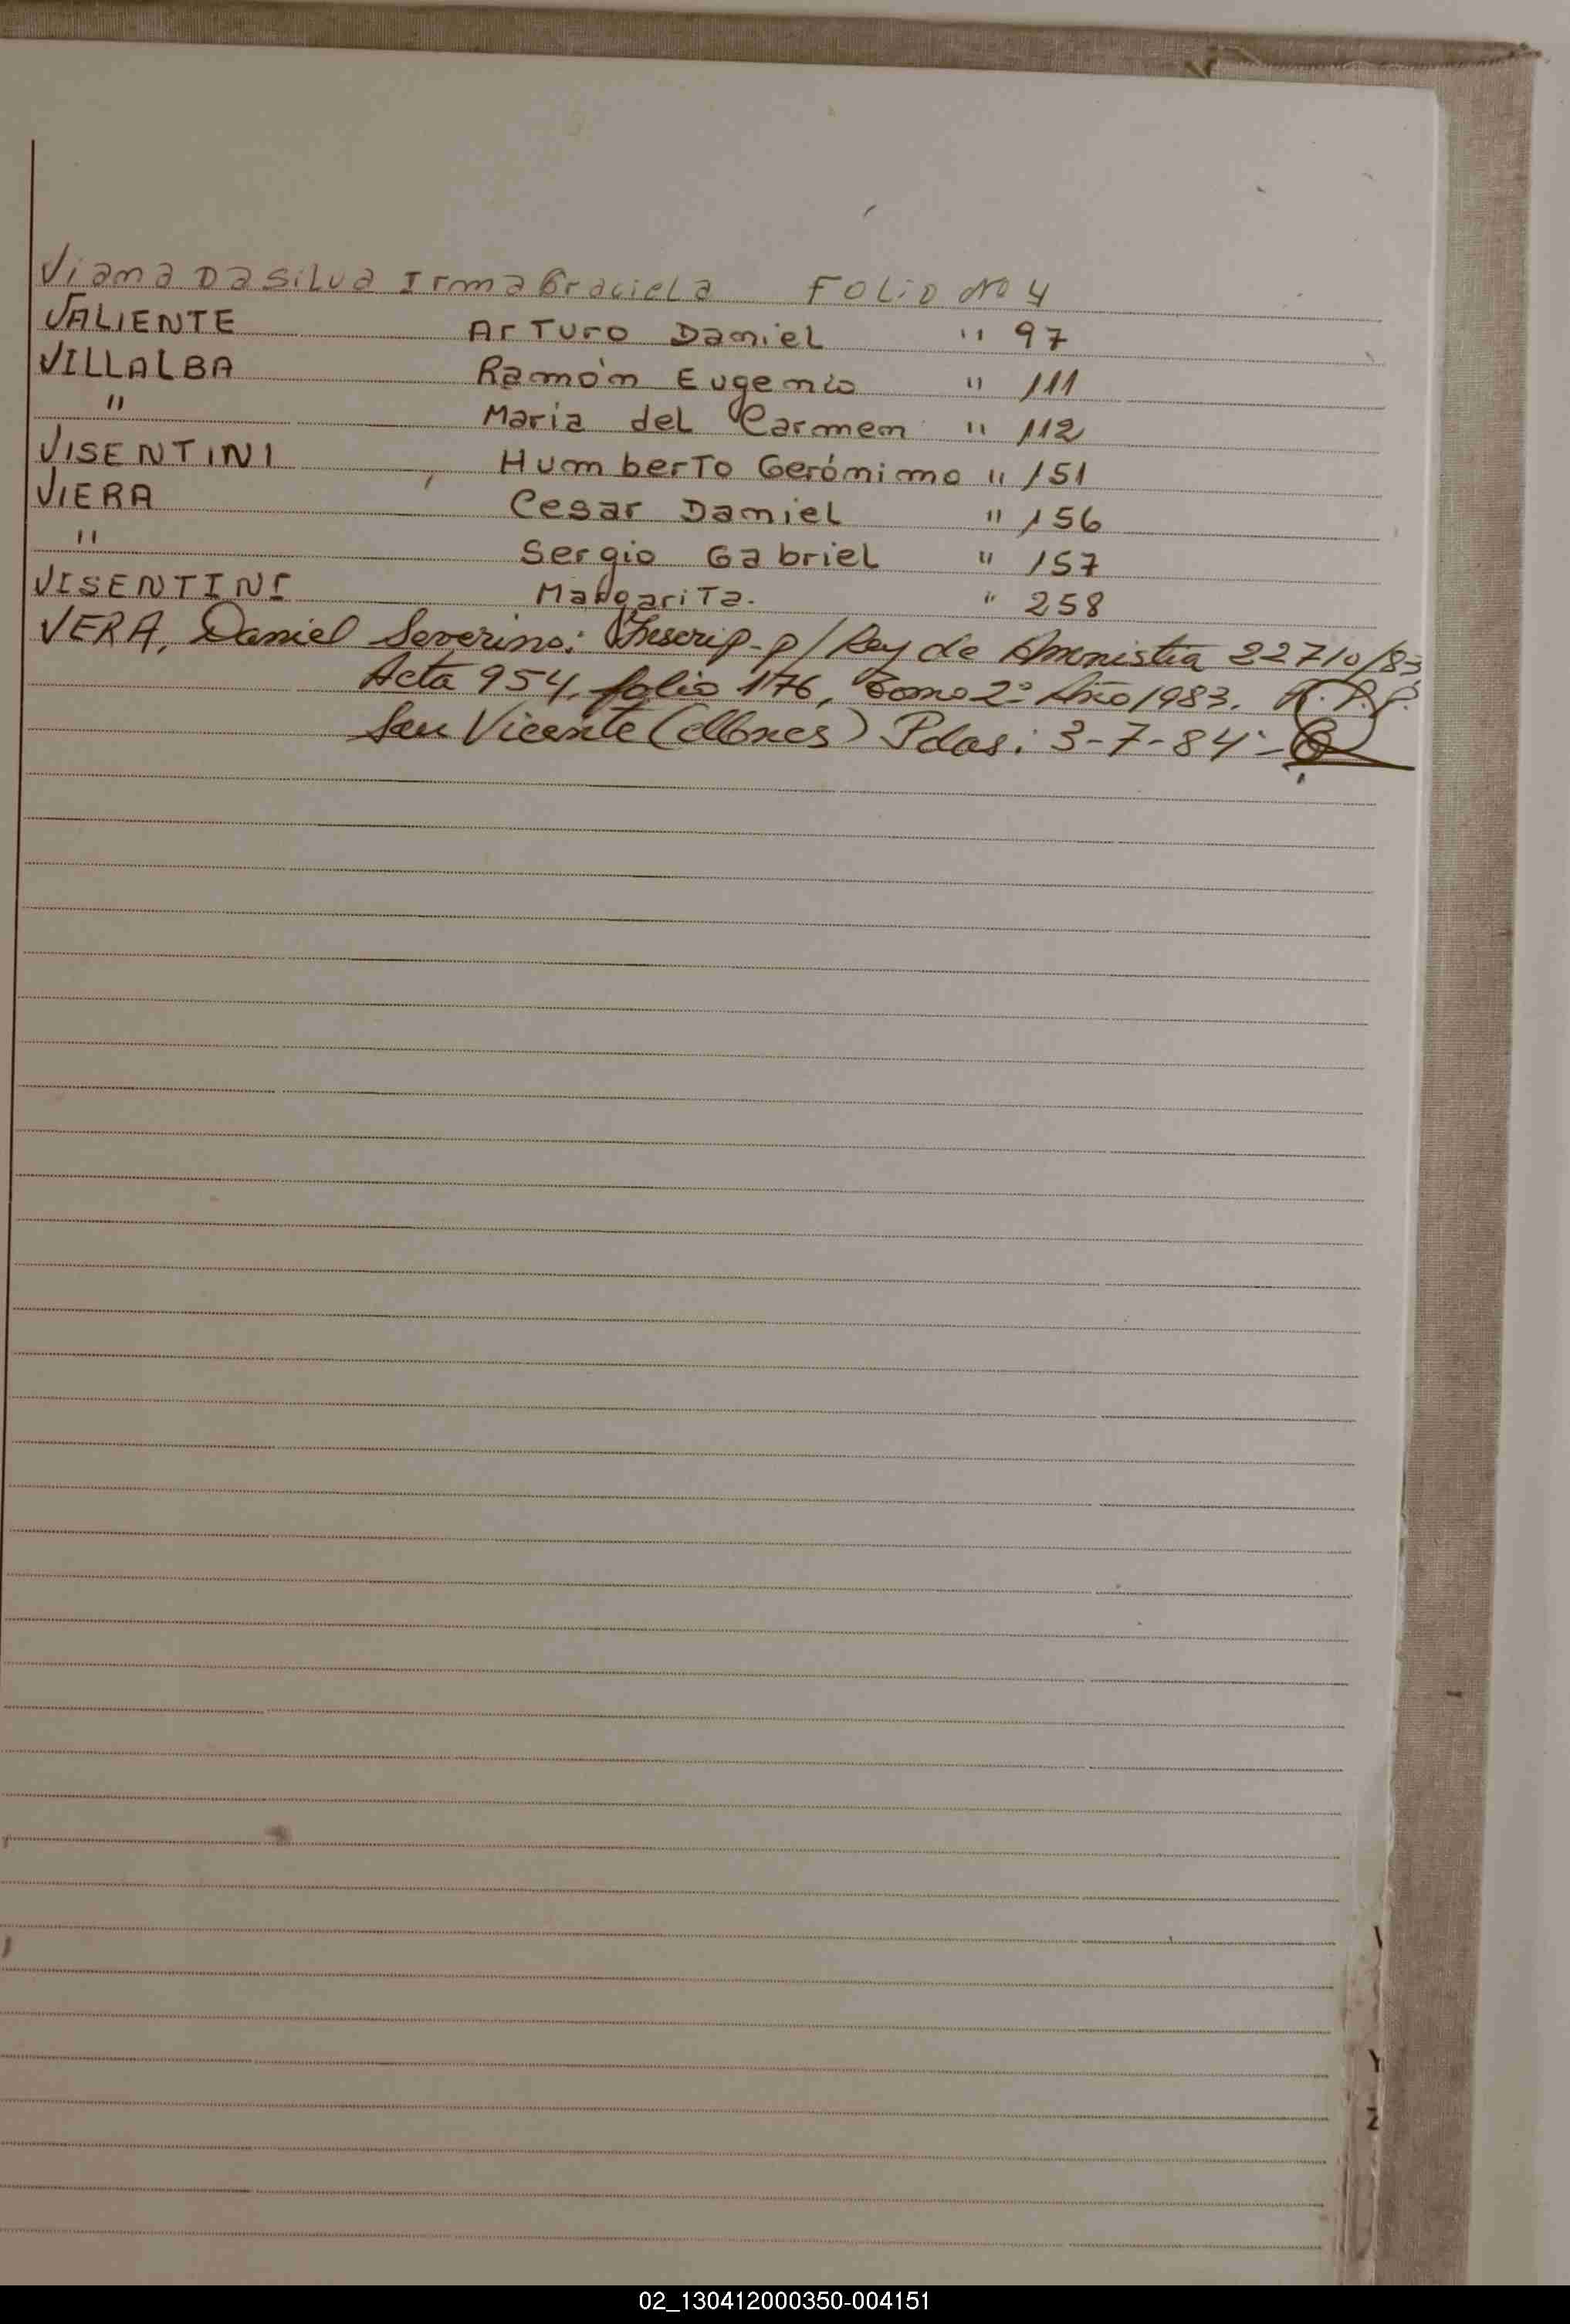 Viana Da Silva Irma Graciela Folio No 4
VALIENTE Arturo Daniel " 97
VILLALBA Ramón Eugenio " 111
" Maria del Carmen " 112
VISENTINI Humberto Gerónimo " 151
VIERA Cesar Daniel " 156
" Sergio Gabriel " 157
VISENTINI Margarita. " 258
VERA, Daniel Severino: Inscrip. p/ Ley de Amnistia 22710/83
Acta 954, folio 176, Tomo 2º Año 1983. R.P.P.
San Vicente (Mnes) Pdas: 3-7-84-
Y
Z
02_130412000350-004151